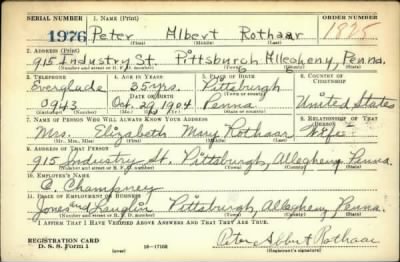 SERIAL NUMBER 1. NAME (Print) ORDER NUMBER
1976 Peter Albert Rothaar 1875
(First) (Middle) (Last)
2. ADDRESS (Print)
915 Industry St. Pittsburgh Allegheny, Penna.
(Number and street or R. F. D. number) (Town) (County) (State)
3. TELEPHONE 4. AGE IN YEARS 5. PLACE OF BIRTH 6. COUNTRY OF CITIZENSHIP
Everglade 35 yrs. Pittsburgh
DATE OF BIRTH (Town or county)
0943 Oct. 29, 1904 Penna. United States
(Exchange) (Number) (Mo.) (Day) (Yr.) (State or country)
7. NAME OF PERSON WHO WILL ALWAYS KNOW YOUR ADDRESS 8. RELATIONSHIP OF THAT PERSON
Mrs. Elizabeth Mary Rothaar Wife
(Mr., Mrs., Miss) (First) (Middle) (Last)
9. ADDRESS OF THAT PERSON
915 Industry St. Pittsburgh, Allegheny, Penna.
(Number and street or R. F. D. number) (Town) (County) (State)
10. EMPLOYER'S NAME
C. Champney
11. PLACE OF EMPLOYMENT OR BUSINESS
Jones and Laughlin Pittsburgh, Allegheny, Penna.
(Number and street or R. F. D. number) (Town) (County) (State)
I AFFIRM THAT I HAVE VERIFIED ABOVE ANSWERS AND THAT THEY ARE TRUE.
REGISTRATION CARD
D. S. S. Form 1 (over) 16—17105 Peter Albert Rothaar
(Registrant's signature)